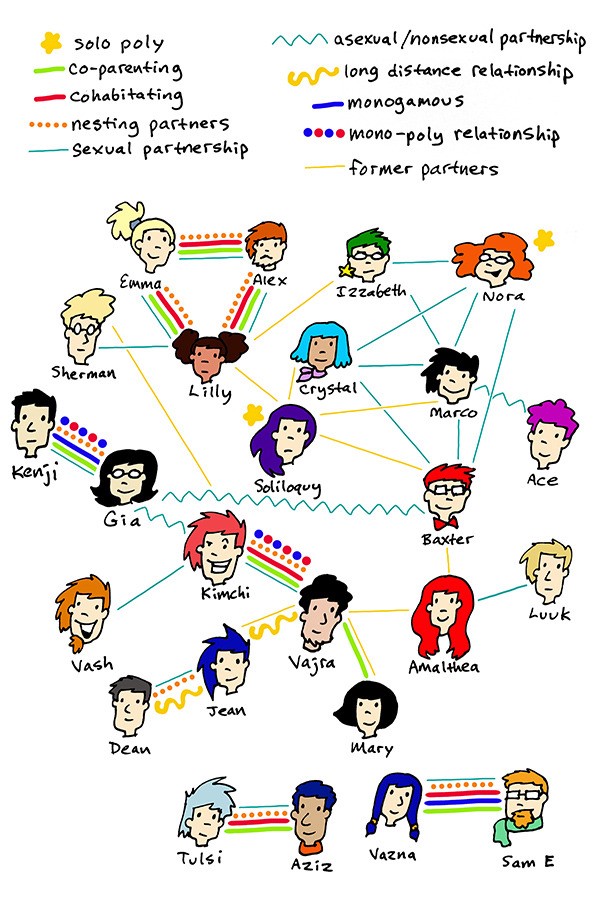 solo poly
co-parenting
cohabitating
nesting partners
sexual partnership
asexual/nonsexual partnership
long distance relationship
monogamous
mono-poly relationship
former partners
Emma
Alex
Izzabeth
Nora
Sherman
Lilly
Crystal
Marco
Kenji
Soliloquy
Ace
Gia
Baxter
Kimchi
Luuk
Vash
Vajra
Amalthea
Jean
Dean
Mary
Tulsi
Aziz
Vazna
Sam E